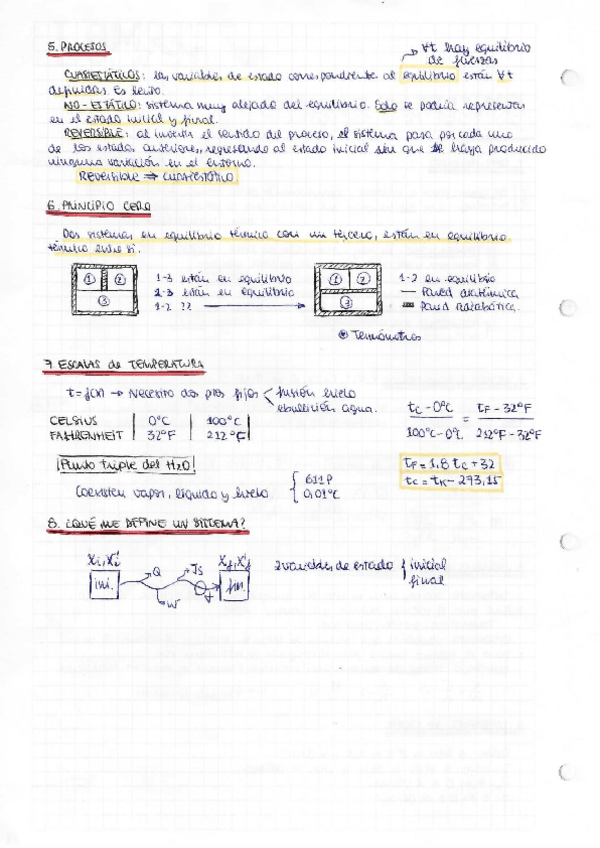 5. PROCESOS
∀t hay equilibrio
de fuerzas
CUASIESTÁTICOS: las variables de estado correspondiente al equilibrio están ∀t
definidas. Es lento.
NO-ESTÁTICO: sistema muy alejado del equilibrio. Solo se podría representar
en el estado inicial y final.
REVERSIBLE: al invertir el sentido del proceso, el sistema pasa por cada uno
de los estados anteriores, regresando al estado inicial sin que se haya producido
ninguna variación en el entorno.
REVERSIBLE ⇒ CUASIESTÁTICO
6. PRINCIPIO CERO
Dos sistemas en equilibrio térmico con un tercero, están en equilibrio
térmico entre sí.
1 2
3
1-3 están en equilibrio
2-3 están en equilibrio
1-2 ??
1 2
3
1-2 en equilibrio
— Pared diatérmica
Pared adiabática.
Termómetros
7 ESCALAS de TEMPERATURA
t = f(x) → Necesito dos ptos fijos
fusión hielo
ebullición agua.
CELSIUS | 0°C | 100°C |
FAHRENHEIT | 32°F | 212°F |
tc - 0°C / 100°C - 0°C = tF - 32°F / 212°F - 32°F
tF = 1.8 tc + 32
tc = tK - 273,15
Punto triple del H2O
Coexisten vapor, líquido y hielo
611 P
0,01°C
8. ¿QUÉ ME DEFINE UN SISTEMA?
Xi, Xi'
ini.
Q
W
Xf, Xf'
fin.
2 variables de estado
inicial
final